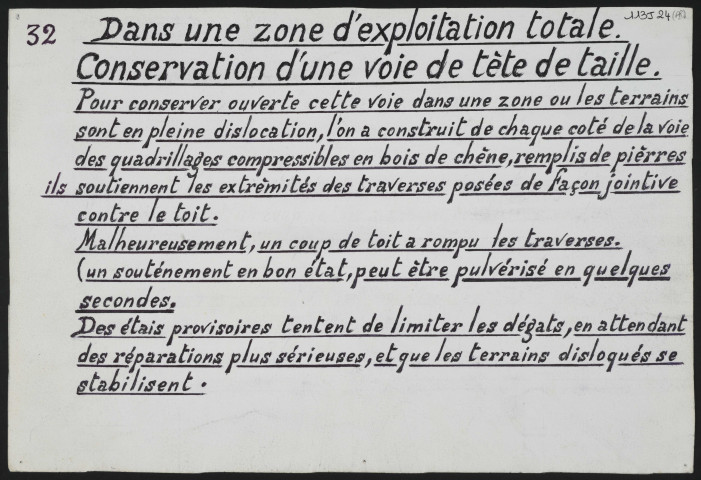 113J24(45)
32 Dans une zone d'exploitation totale.
Conservation d'une voie de tète de taille.
Pour conserver ouverte cette voie dans une zone ou les terrains
sont en pleine dislocation, l'on a construit de chaque coté de la voie
des quadrillages compressibles en bois de chêne, remplis de pièrres
ils soutiennent les extrèmités des traverses posées de façon jointive
contre le toit.
Malheureusement, un coup de toit a rompu les traverses.
(un souténement en bon état, peut ètre pulvérisé en quelques
secondes.
Des étais provisoires tentent de limiter les dégats, en attendant
des réparations plus sérieuses, et que les terrains disloqués se
stabilisent.